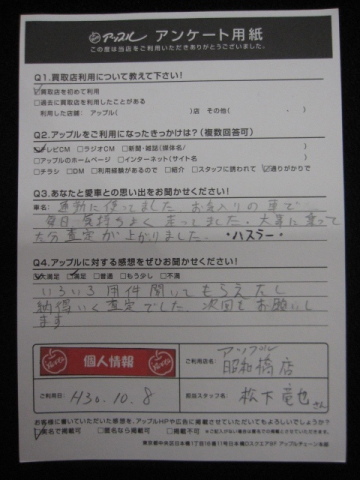 アップル アンケート用紙
この度は当店をご利用いただきありがとうございました。
Q1.買取店利用について教えて下さい!
買取店を初めて利用
□過去に買取店を利用したことがある
利用した店舗: アップル( )店 その他( )
Q2.アップルをご利用になったきっかけは?(複数回答可)
テレビCM □ラジオCM □新聞・雑誌(媒体名/ )
□アップルのホームページ □インターネット(サイト名 )
□チラシ □DM □利用経験があるので □紹介 □スタッフに誘われて 通りがかりで
Q3.あなたと愛車との思い出をお聞かせください!
車名: 通勤に使ってました お気入りの車で
毎日気持ちよく走ってました。大事に乗って
大分査定が上がりました。・ハスラー・
Q4.アップルに対する感想をぜひお聞かせください!
大満足 満足 □普通 □もう少し □不満
いろいろ用件聞いてもらえたし
納得いく査定でした 次回もお願いし
ます
個人情報
ご利用店名: アップル
昭和橋店
ご利用日: H30.10.8
担当スタッフ名: 松下竜也さん
お客様に書いていただいた感想を、アップルHPや広告に掲載させていただいてもよろしいでしょうか?
実名で掲載可 □匿名なら掲載可 □掲載不可